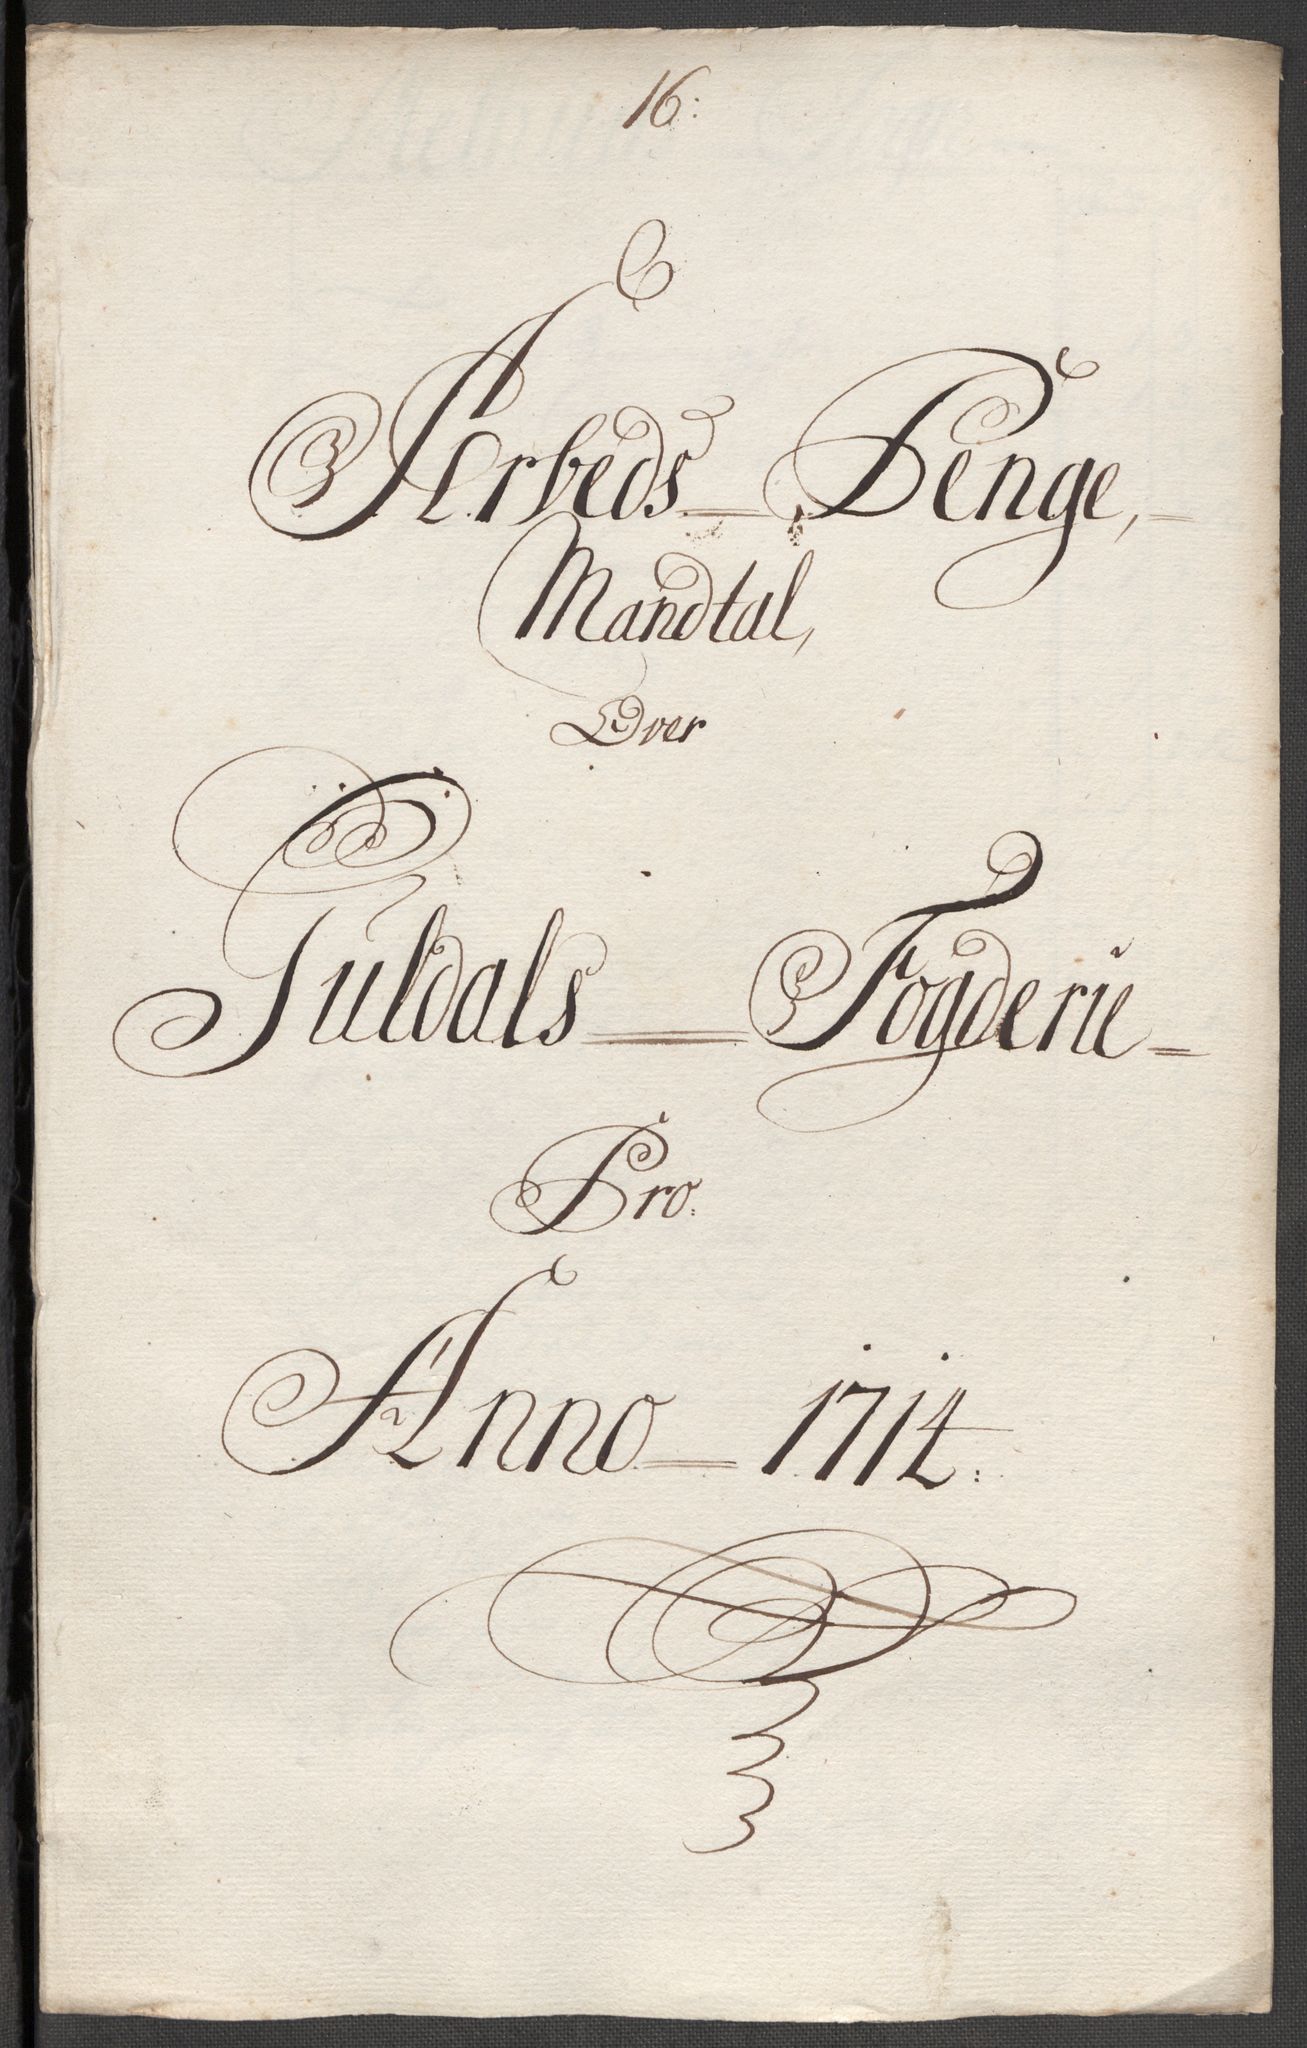 16:
Arbeds = Penge, =
Mandtal,
Over
Guldals = Fogderie =
Pro.
Anno = 1714: